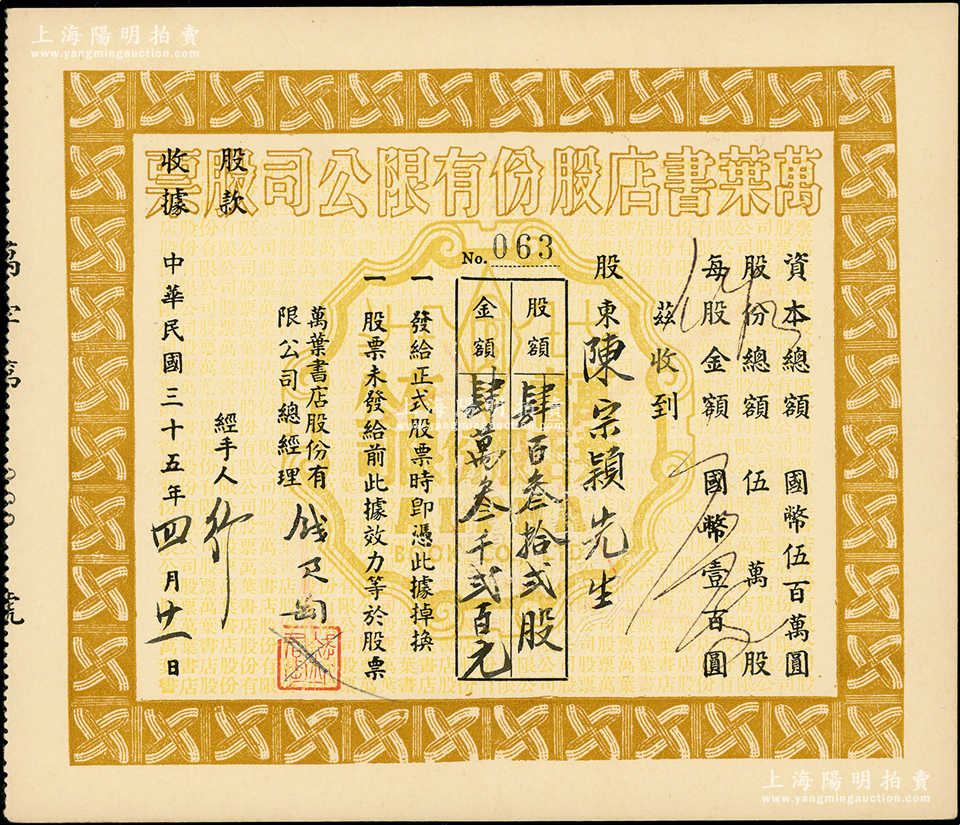 上海陽明拍賣
www.yangmingauction.com
萬葉書店股份有限公司股票
資本總額 國幣伍百萬圓
股份總額 伍萬股
每股金額 國幣壹百圓
茲收到
股東陳宗穎先生
No. 063
股額 肆百叁拾弍股
金額 肆萬叁千弍百元
一 發給正式股票時卽憑此據掉換
一 股票未發給前此據效力等於股票
萬葉書店股份有
限公司總經理 錢君匋
股款
收據
經手人
中華民國三十五年四月廿一日
BOOK CO. LTD.
上海陽明拍賣
www.yangmingauction.com